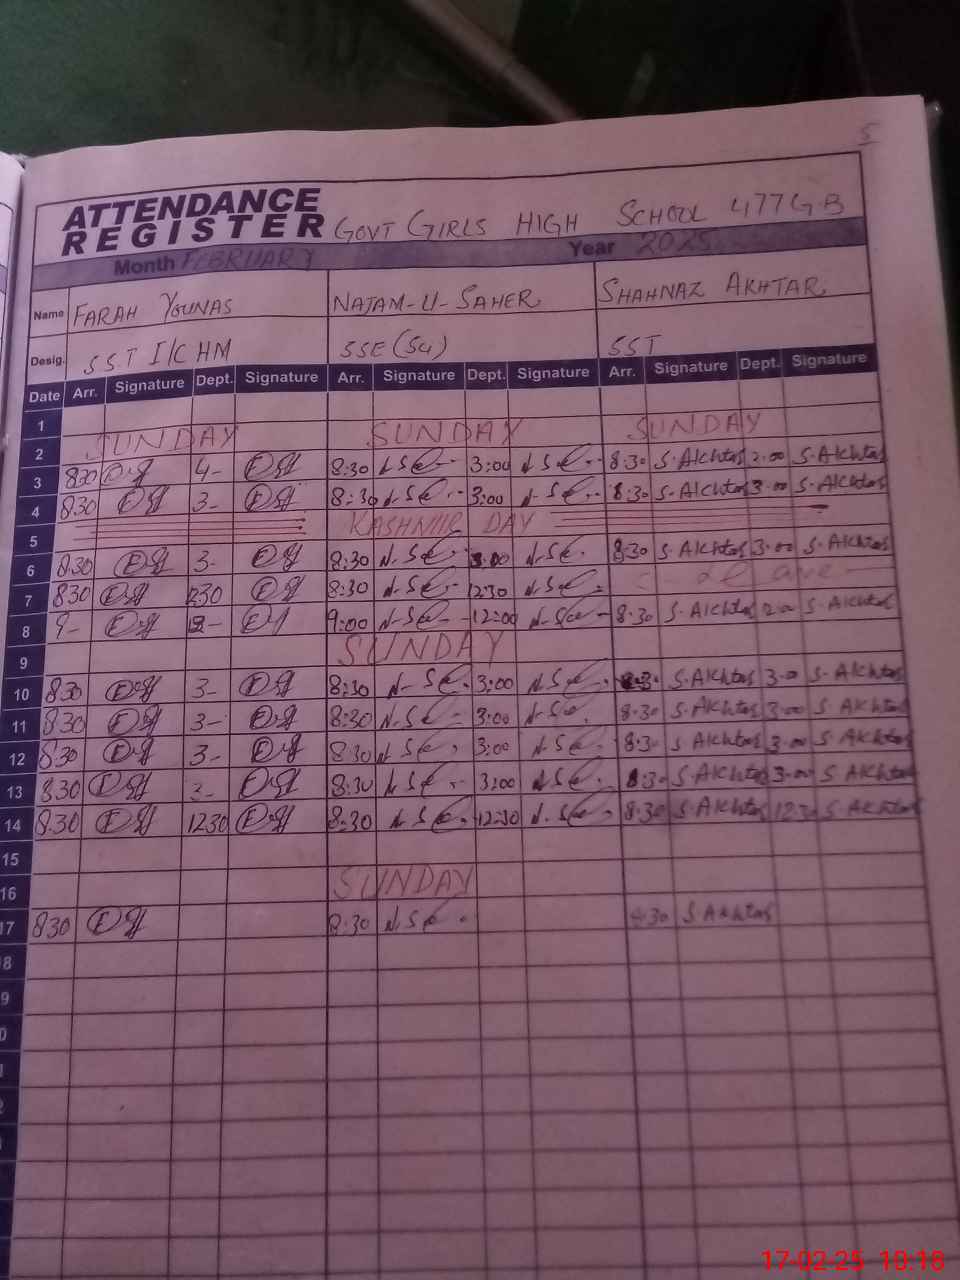 5
ATTENDANCE
REGISTER GOVT GIRLS HIGH SCHOOL 477 G.B
Month FEBRUARY Year 2025
Name FARAH YOUNAS NAJAM-U-SAHER SHAHNAZ AKHTAR
Desig. S.S.T I/C HM SSE (Sci) SST
Date Arr. Signature Dept. Signature Arr. Signature Dept. Signature Arr. Signature Dept. Signature
1
2 SUNDAY SUNDAY SUNDAY
3 830 4- 8:30 3:00 8:30 S.Akhtar 2.00 S.Akhtar
4 830 3- 8:30 3:00 8:30 S.Akhtar 3.00 S.Akhtar
5 KASHMIR DAY
6 830 3- 8:30 3:00 8:30 S.Akhtar 3.00 S.Akhtar
7 830 1230 8:30 12:30 leave
8 9- 12- 9:00 12:00 8:30 S.Akhtar S.Akhtar
9 SUNDAY
10 830 3- 8:30 3:00 8:30 S.Akhtar 3.00 S.Akhtar
11 830 3- 8:30 3:00 8:30 S.Akhtar 3.00 S.Akhtar
12 830 3- 8:30 3:00 8:30 S.Akhtar 3.00 S.Akhtar
13 830 3- 8:30 3:00 8:30 S.Akhtar 3.00 S.Akhtar
14 830 1230 8:30 12:30 8:30 S.Akhtar 12:30 S.Akhtar
15
16 SUNDAY
17 830 8:30 8:30 S.Akhtar
8
9
0
17-02-25 10:18